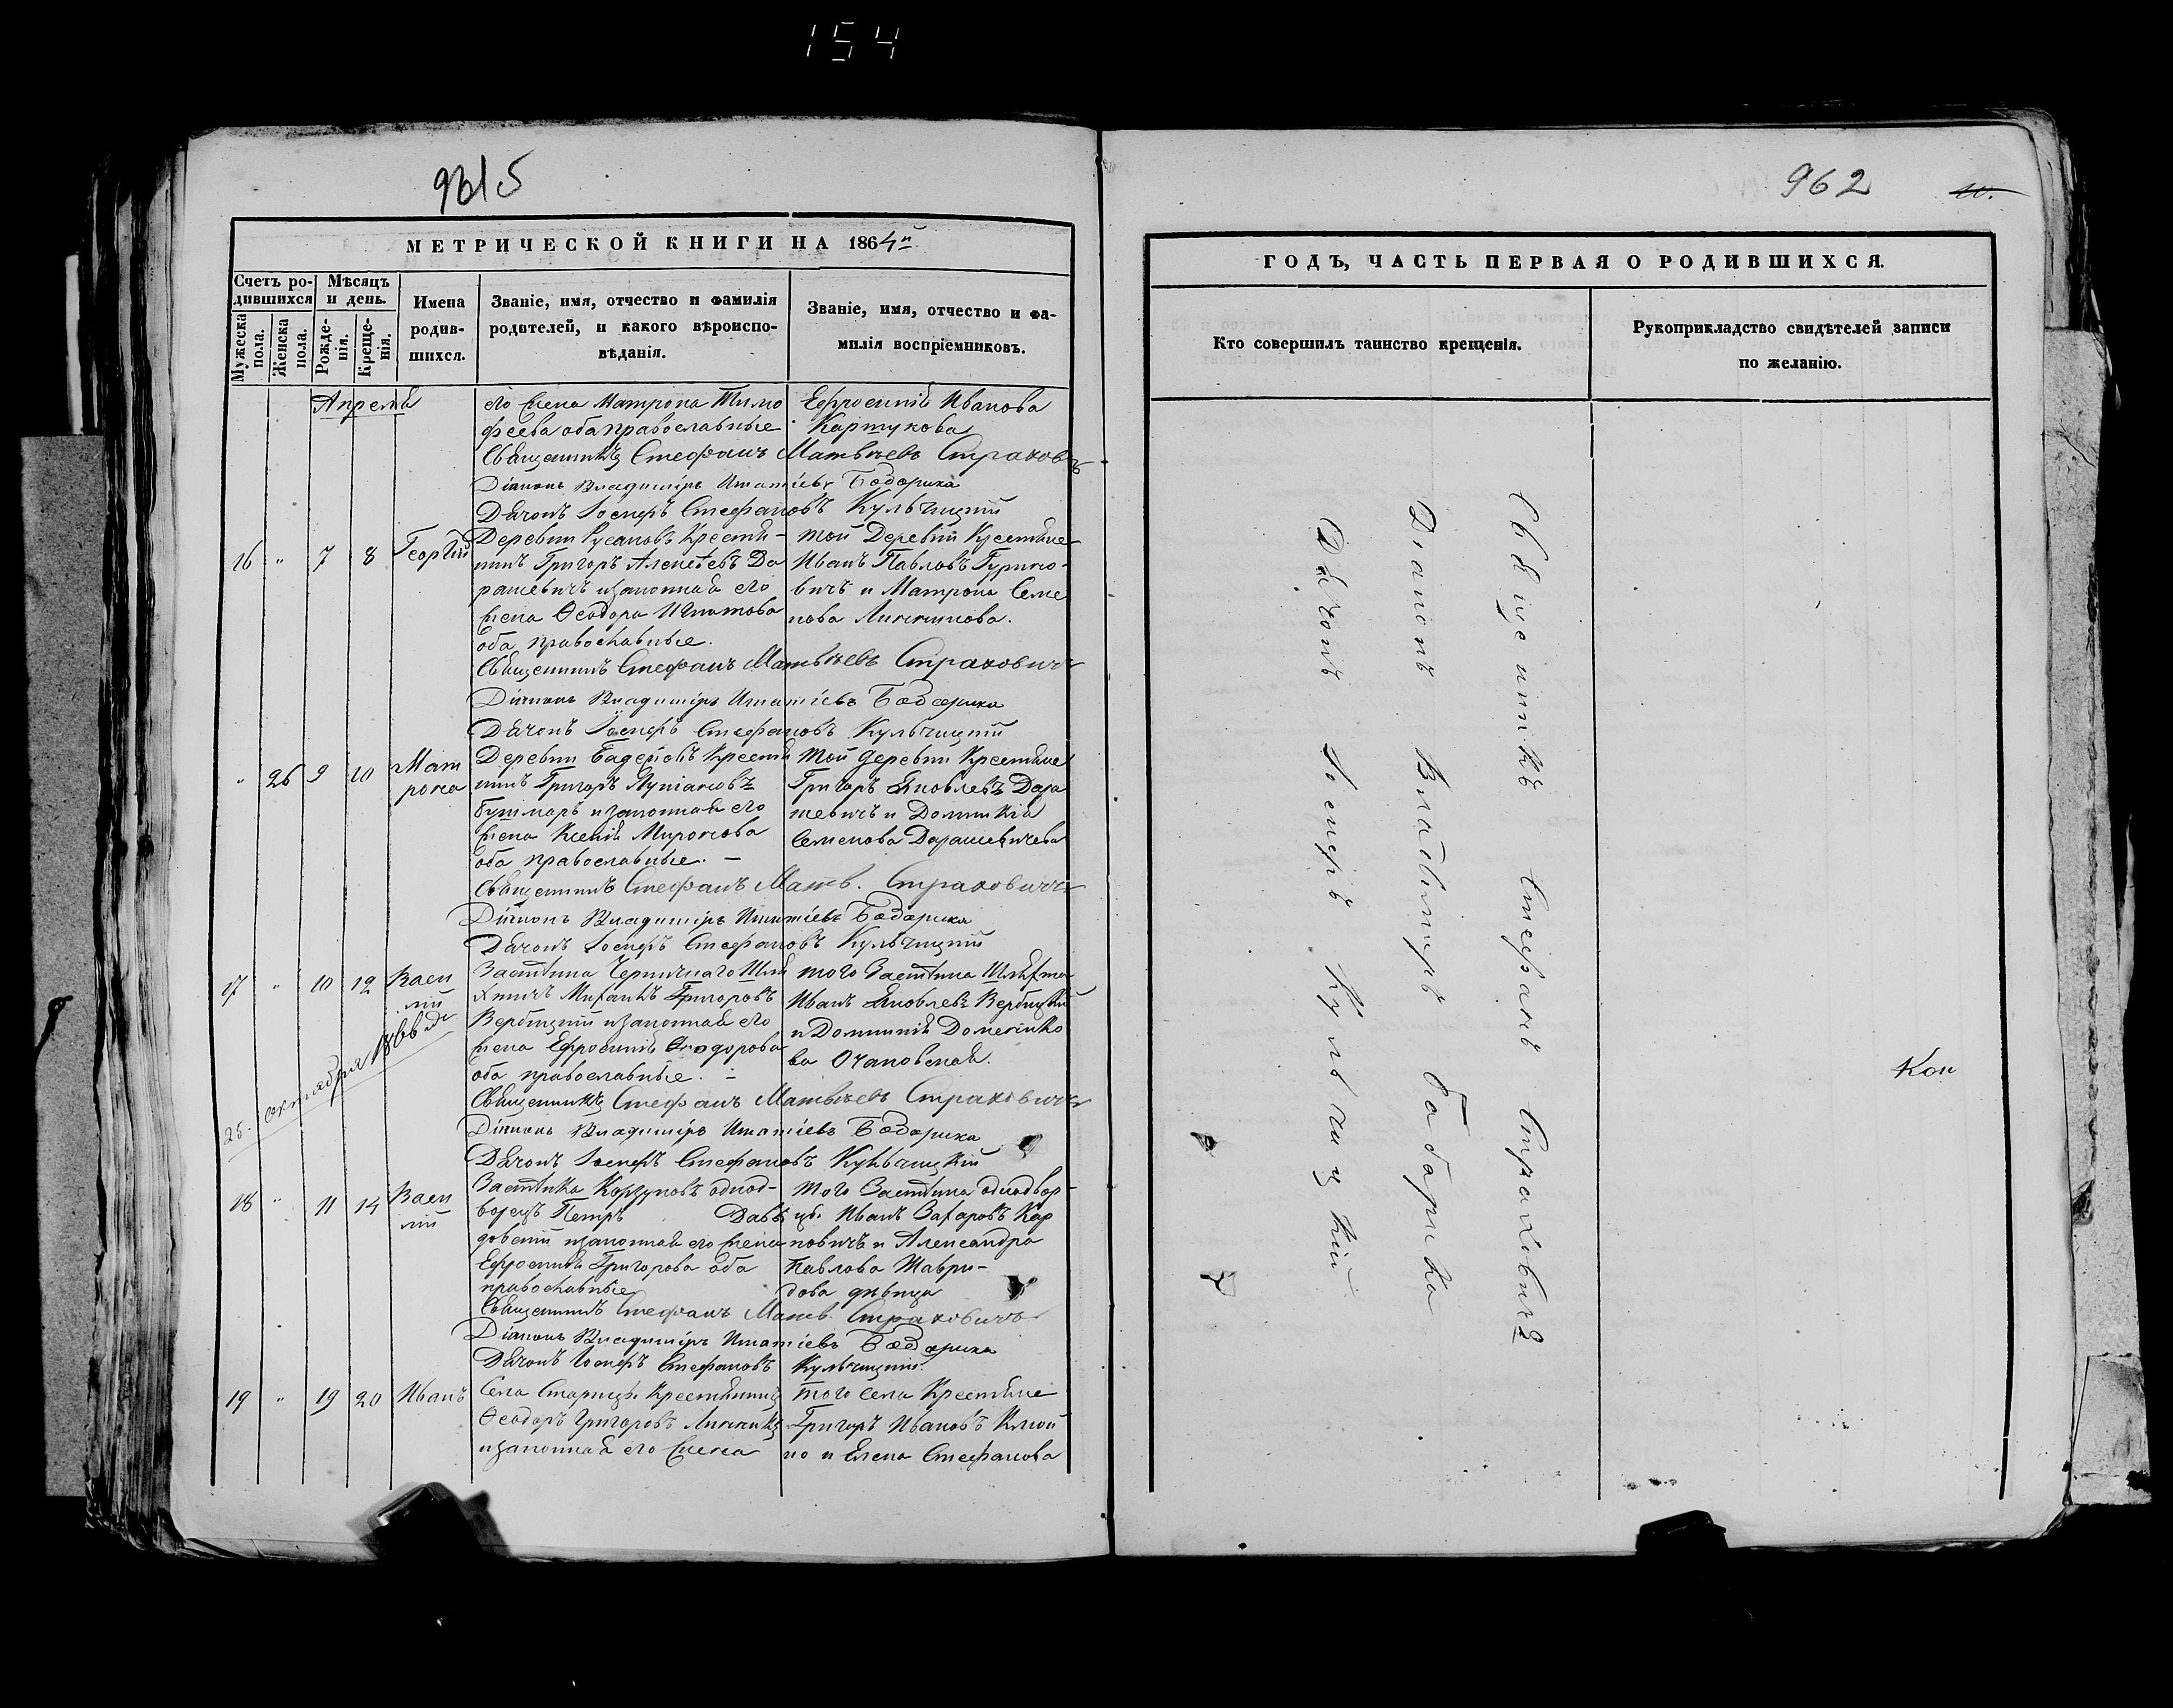 154
9615
МЕТРИЧЕСКОЙ КНИГИ НА 1864й
Счетъ родившихся
Мужеска пола.
Женска пола.
Мѣсяцъ и день.
Рожденія.
Крещенія.
Имена родившихся.
Званіе, имя, отчество и фамилія родителей, и какого вѣроисповѣданія.
Званіе, имя, отчество и фамилія воспріемниковъ.
Апреля
его Жена Матрона Тимо
феева оба православные
Ефросинія Иванова
Картукова
Священникъ Стефанъ Матвѣевъ Страхов
Діаконъ Владиміръ Игнатіевъ Бодорика
Дячокъ Іосифъ Стефановъ Кульчицкій
16 " 7 8 Георгій
Деревни Русаковъ Крестья-
нинъ Григоръ Алексѣевъ Да
рашевичъ изаконная его
Жена Ѳеодора Игнатова
оба православные.
той Деревни Крестьяне
Иванъ Павловъ Гурино-
вичъ и Матрона Семе
нова
Священникъ Стефанъ Матвѣевъ Страховичъ
Діаконъ Владиміръ Игнатіевъ Бодорика
Дячокъ Іосифъ Стефановъ Кульчицкій
" 26 9 10 Мат
рона
Деревни Крестья
нинъ Григоръ
изаконная его
Жена Ксенія Миронова
оба православные. —
той деревни Крестьяне
Григоръ Яковлевъ Дара
шевичъ и Доминикія
Семенова Дарашевичева
Священникъ Стефанъ Матв. Страховичъ
Діаконъ Владиміръ Игнатіевъ Бодорика
Дячокъ Іосифъ Стефановъ Кульчицкій
17 " 10 12 Васи
лій
25. октября 1866 г.
Застѣнка Шля
хтичъ Григоровъ
Вербицкій изаконная его
Жена Ефросинія Ѳеодорова
оба православные. —
того Застѣнка Шляхта
Иванъ Яковлевъ Вербицкій
и Доминикія Доменико
ва
Священникъ Стефанъ Матвѣевъ Страховичъ
Діаконъ Владиміръ Игнатіевъ Бодорика
Дячокъ Іосифъ Стефановъ Кульчицкій
18 " 11 14 Васи
лій
Застѣнка Корзуновъ однод-
ворецъ Петръ
изаконная его Жена
Ефросинія Григорова оба
православные
того Застѣнка однодвор-
цы Иванъ Захаровъ Кар
повичъ и Александра
Павлова Маври-
дова дѣвица
Священникъ Стефанъ Матв. Страховичъ
Діаконъ Владиміръ Игнатіевъ Бодорика
Дячокъ Іосифъ Стефановъ Кульчицкій.
19 " 19 20 Иванъ
Села Старицы Крестьянинъ
Ѳеодоръ Григоровъ
изаконная его Жена
того села Крестьяне
Григоръ Ивановъ
и Елена Стефанова
962
ГОДЪ, ЧАСТЬ ПЕРВАЯ О РОДИВШИХСЯ.
Кто совершилъ таинство крещенія.
Рукоприкладство свидѣтелей записи по желанію.
Священникъ Стефанъ Страховичъ
Діаконъ Владиміръ Бадарика
Дячокъ Іосифъ Кульчицкій
Кон